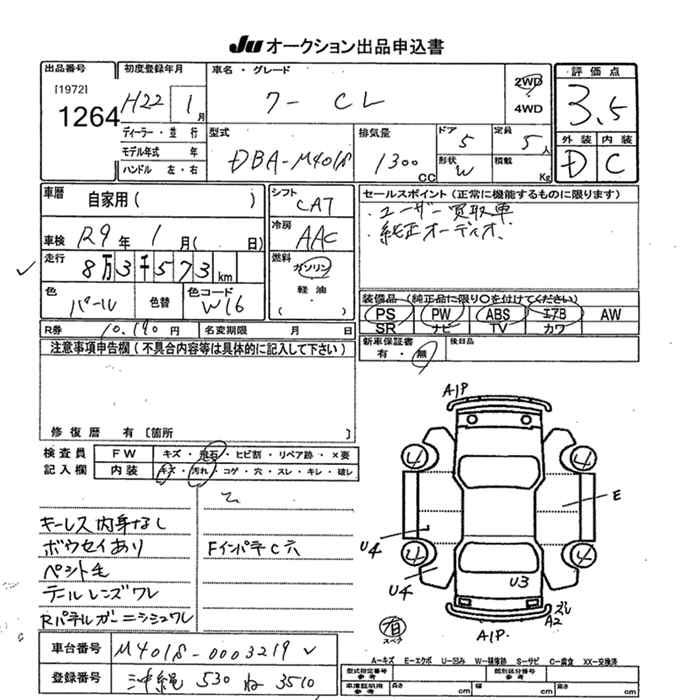 JU オークション出品申込書
出品番号
[1972]
1264
初度登録年月
H22 1月
ディーラー・並行
モデル年式 年
ハンドル 左・右
車名・グレード
クー CL
2WD
4WD
評価点
3.5
型式
DBA-M401S
排気量
1300 CC
ドア
5
定員
5人
形状
W
積載
Kg
外装 内装
D C
車歴
自家用( )
車検
R9年 1月( 日)
走行
8万3千573km
色
パール
色替
色コード
W16
シフト
CAT
冷房
AAC
燃料
ガソリン
軽油
( )
セールスポイント(正常に機能するものに限ります)
・ユーザー買取車
・純正オーディオ
装備品(純正品に限り○を付けてください)
PS PW ABS エアB AW
SR ナビ TV カワ
R券 10,190円
名変期限 月 日
新車保証書
有・無
後日品
注意事項申告欄(不具合内容等は具体的に記入して下さい)
修復歴 有 〔箇所 〕
検査員
記入欄
FW キズ・飛石・ヒビ割・リペア跡・×要
内装 キズ・汚れ・コゲ・穴・スレ・キレ・破レ
キーレス内身なし
ボウセイあり
Fインパネ C 穴
テールレンズワレ
A1P
4
4
E
U4
4
4
U4
U3
有
スペア
A1P.
A2
車台番号
M401S-0003219
登録番号
沖縄 530 ね 3510
A-キズ E-エクボ U-凹み W-補修跡 S-サビ C-腐食 XX-交換済
型式指定番号
参考
類別区分番号
参考
車庫証明用
参考
長さ cm
幅 cm
高さ cm